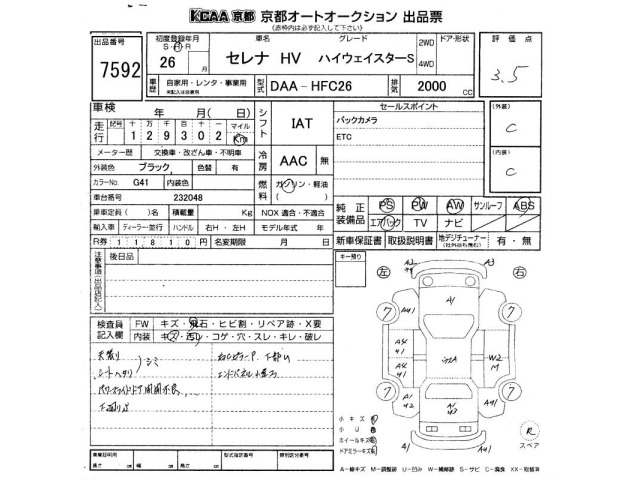 KCAA 京都 京都オートオークション 出品票
(赤枠内は必ず記入して下さい)
出品番号
7592
初度登録年月
S・H
26 月
車名
グレード
セレナ HV ハイウェイスターS
2WD
4WD
ドア・形状
評価点
3.5
車歴
自家用・レンタ・事業用
未記入は自家用
型式
DAA-HFC26
排気
2000 CC
車検 年 月(日)
走行
記号 十 万 千 百 十 一 マイル
129302 Km
メーター歴 交換車・改ざん車・不明車
外装色 ブラック 色替 有
カラーNo G41 内装色
車台番号 232048
乗車定員 ( )名 積載量 Kg
輸入車 ディーラー・並行 ハンドル 右H・左H
R券 11810円 名変期限 月 日
シフト
IAT
冷房
AAC 無
燃料
ガソリン・軽油
( )
NOX 適合・不適合
モデル年式 年
セールスポイント
バックカメラ
ETC
(外装)
C
(内装)
C
純正装備品
PS PW AW サンルーフ ABS
エアバック TV ナビ
新車保証書 取扱説明書 地デジチューナー 有・無
注意事項(出品店記入)
後日品
キー預り
検査員記入欄
FW キズ・飛石・ヒビ割・リペア跡・X要
内装 キズ・汚レ・コゲ・穴・スレ・キレ・破レ
天張り シミ
シートヘタリ
パワースライドドア開閉不良
下廻りサビ
左 右
A2 A3
A1
A41
7 7
7 7
W2
M
A41
A1
小キズ
小U
ホイールキズ
ドアミラーキズ
R
スペア
車庫証明用
長さ cm 幅 cm 高さ cm
型式指定番号
類別区分番号
A－線キズ M－調整跡 U－凹み W－補修跡 S－サビ C－腐食 XX－取替済